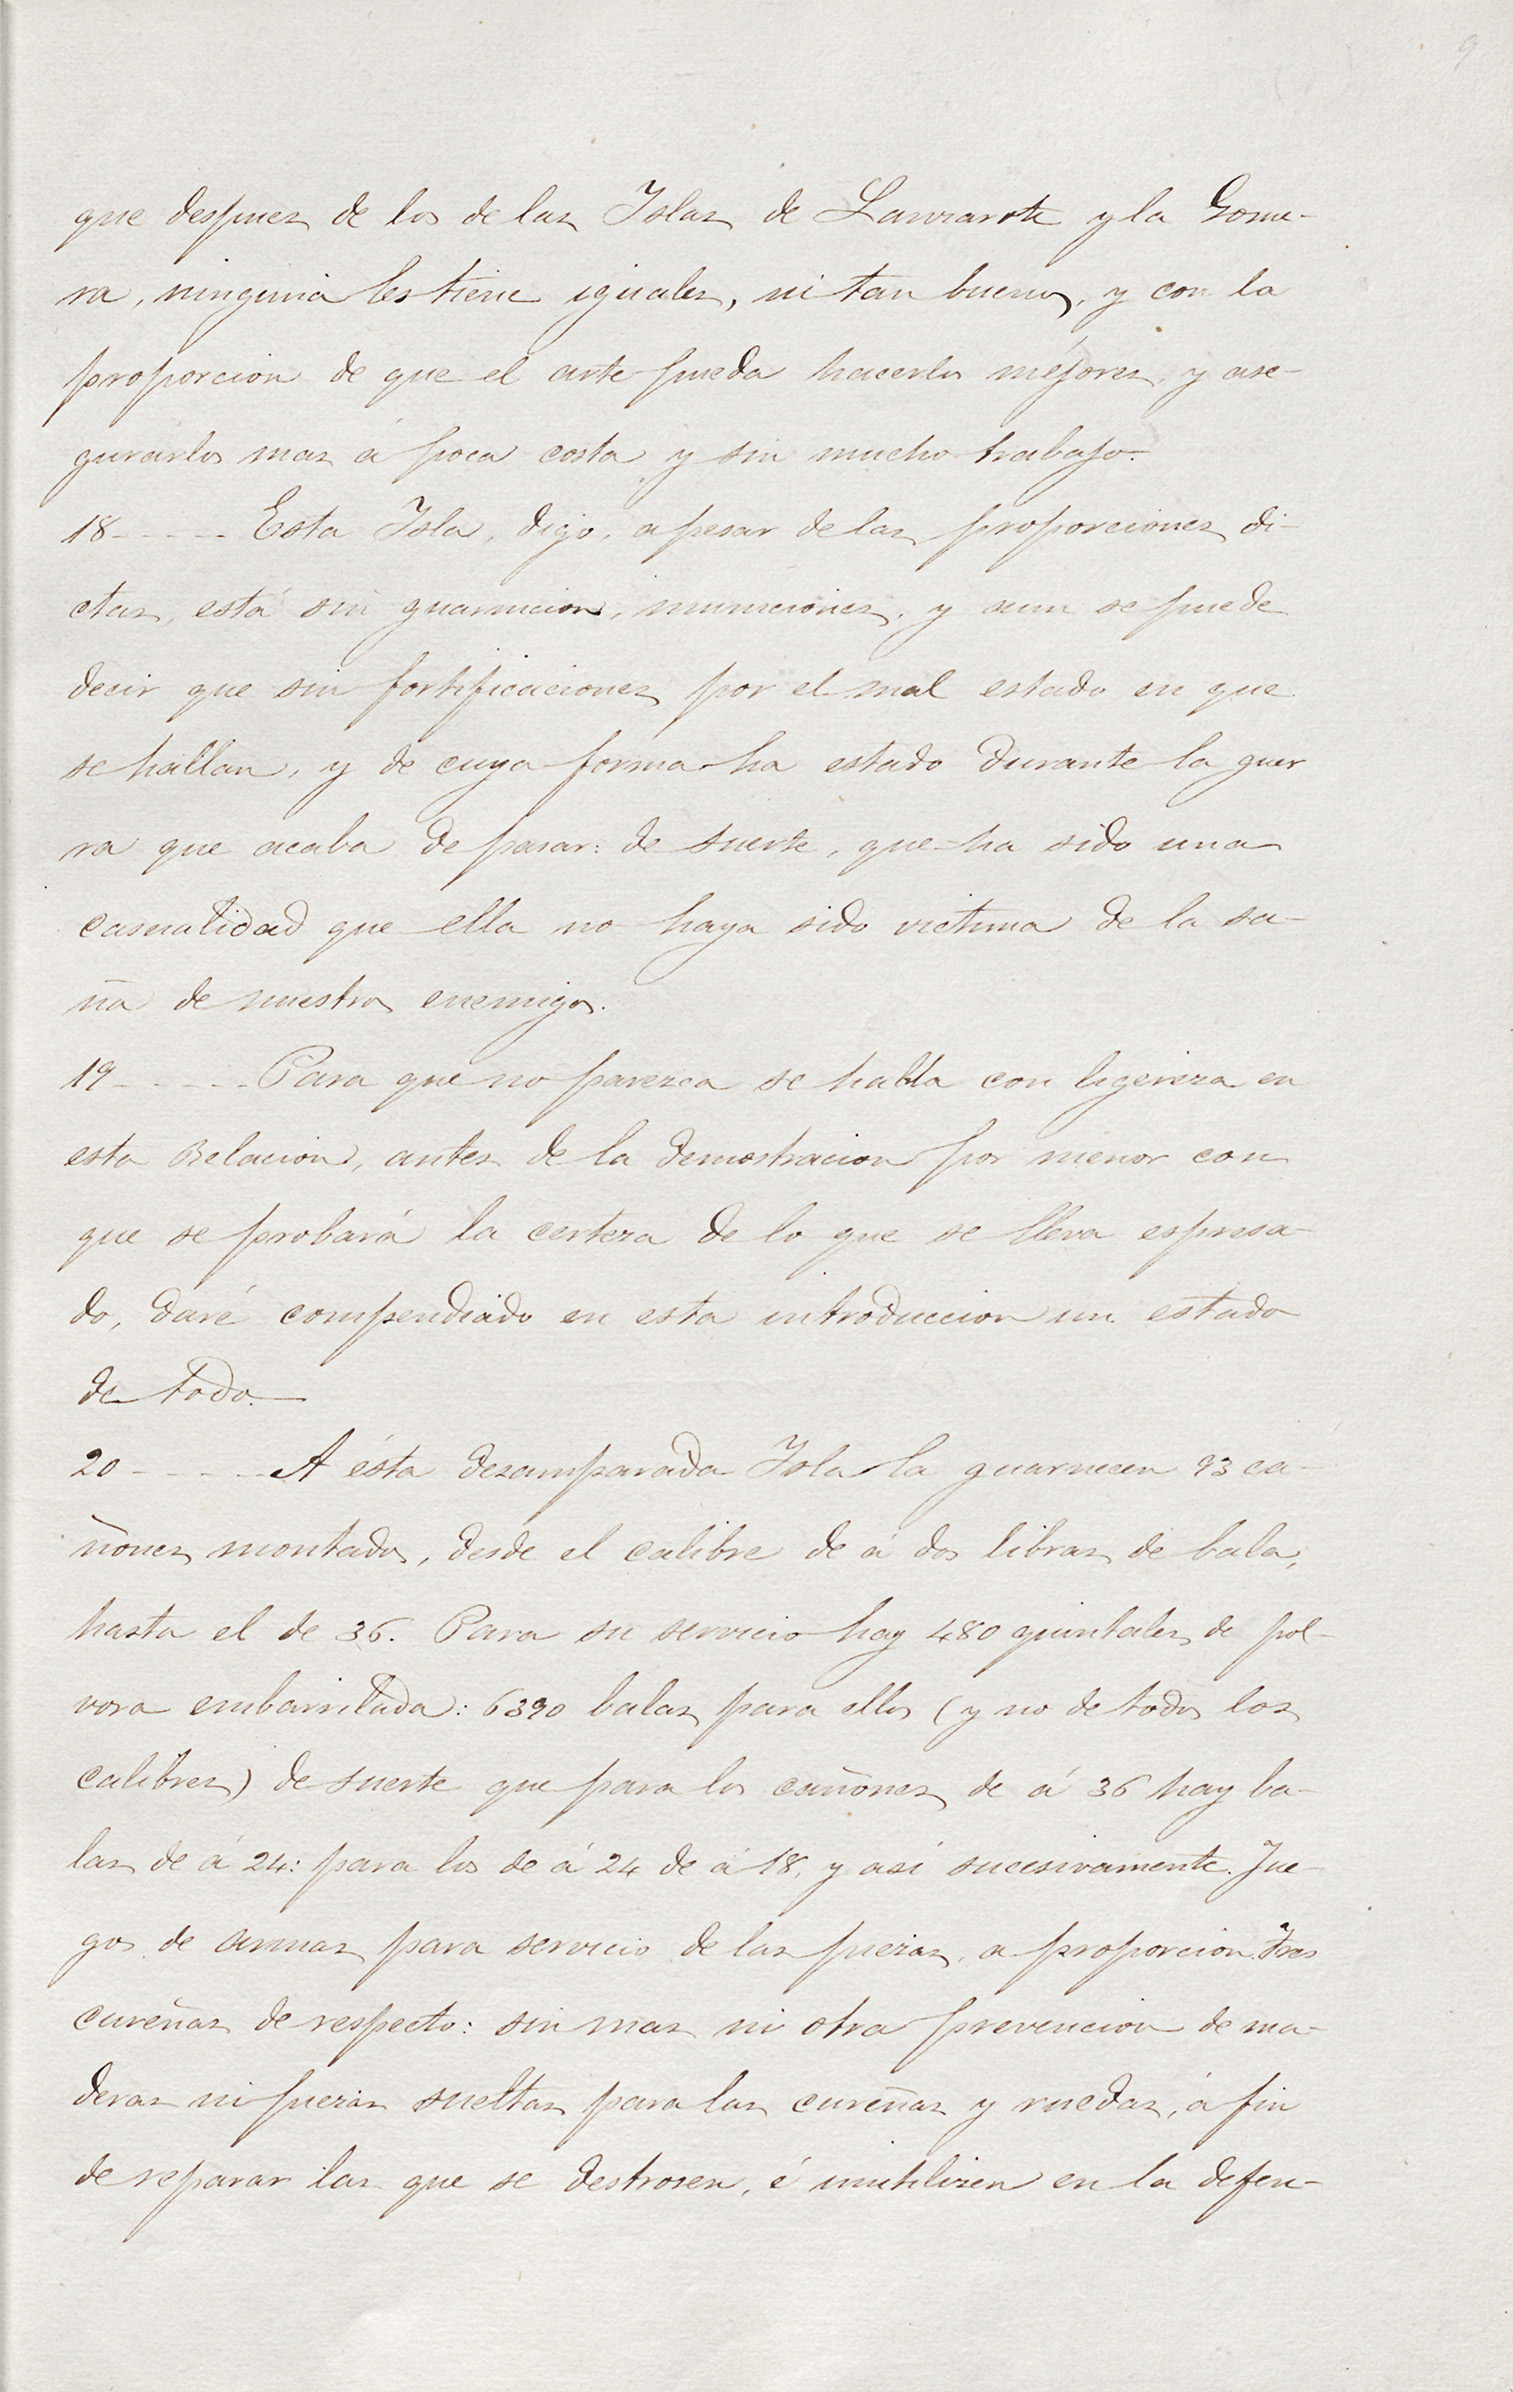 9
que despues de los de las Yslas de Lanzarote y la Gome-
ra, ninguna les tiene iguales, ni tan buenos, y con la
proporcion de que el arte pueda hacerlos méjores, y ase-
gurarlos mas á poca costa y sin mucho trabajo.
18 - - - - - Esta Ysla, digo, apesar de las proporciones di-
ctas, está sin guarnicion, municiones, y aun se puede
decir que sin fortificaciones por el mal estado en que
se hallan, y de cuya forma ha estado durante la guer
ra que acaba de pasar: de suerte, que ha sido una
casualidad que ella no haya sido victima de la sa-
ña de nuestros enemigos.
19 - - - - - Para que no parezca se habla con ligereza en
esta Relacion, antes de la demostracion por menor con
que se probará la certeza de lo que se lleva espresa-
do, daré compendiado en esta introduccion un estado
de todo.
20 - - - - - A ésta desamparada Ysla la guarnecen 93 ca-
ñones montados, desde el calibre de á dos libras de bala,
hasta el de 36. Para su servicio hay 480 quintales de pol-
vora embarrilada: 6390 balas para ellos (y no de todos los
calibres) de suerte que para los cañones de á 36 hay ba-
las de á 24: para los de á 24 de á 18, y asi sucesivamente. Jue-
gos de armas para servicio de las piezas, a proporcion. Tres
cureñas de respecto: sin mas ni otra prevencion de ma-
deras ni piezas sueltas para las cureñas y ruedas, á fin
de reparar las que se destrosen, é inutilizen en la defen-